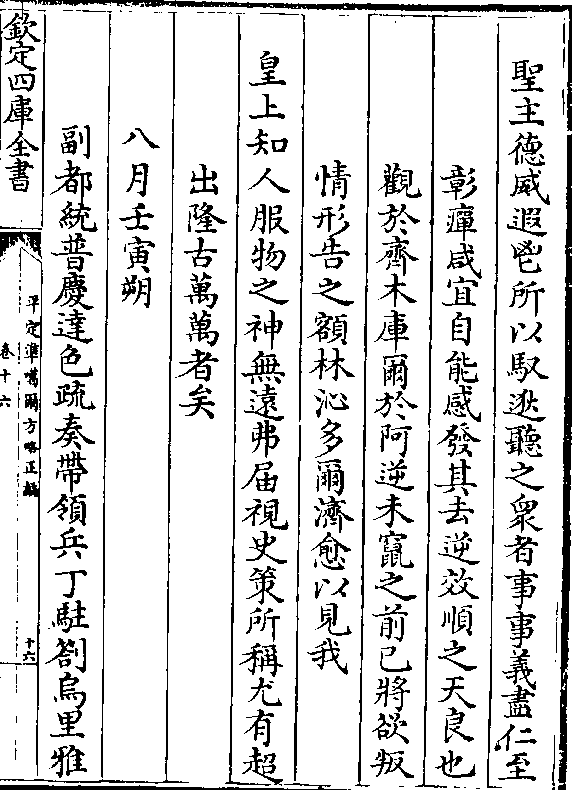 聖主德威遐鬯所以馭逖聽之衆者事事義盡仁至
彰癉咸宜自能感發其去逆效順之天良也
觀於齊木庫爾於阿逆未竄之前已將欲叛
情形告之額林沁多爾濟愈以見我
皇上知人服物之神無遠弗届視史策所稱尤有超
出隆古萬萬者矣
八月壬寅朔
副都統普慶達色疏奏帶領兵丁駐劄烏里雅
欽定四庫全書
平定準噶爾方略正編
卷十六
十六